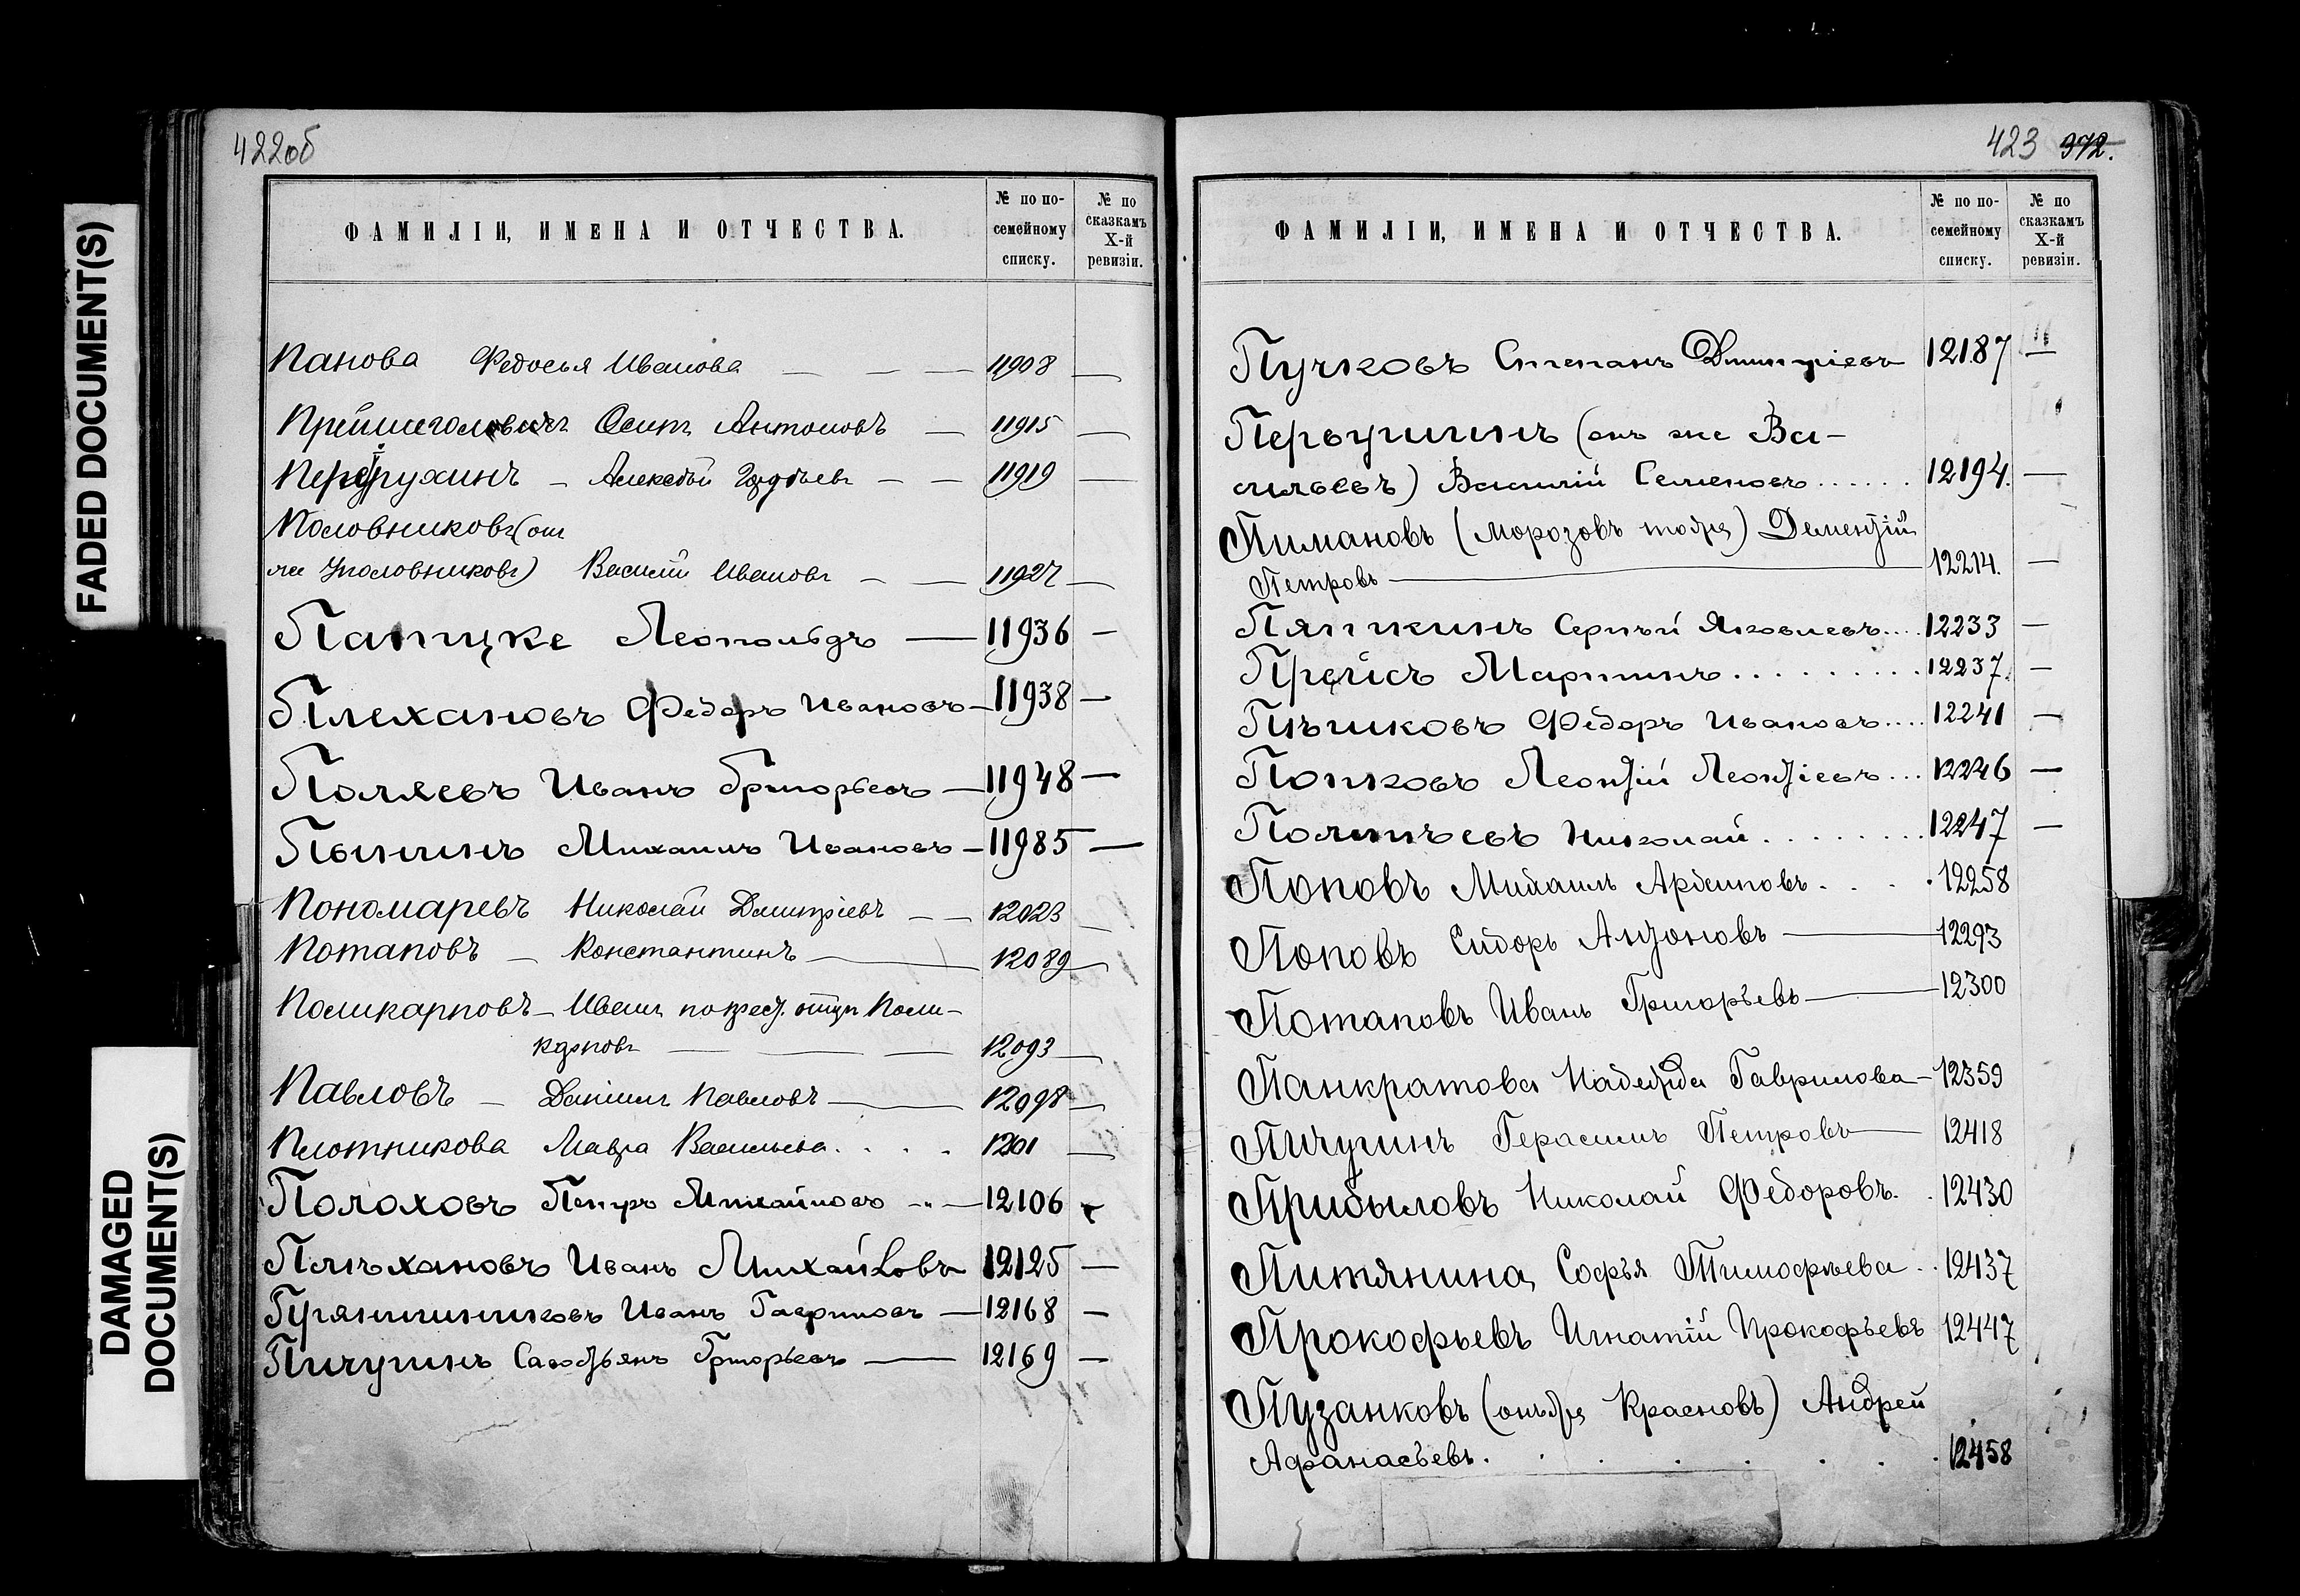 422об
ФАМИЛІИ, ИМЕНА И ОТЧЕСТВА.
№ по по-
семейному
списку.
№ по
сказкамъ
X-й
ревизіи.
Панова Федосья Иванова — — — 11908 —
Осипъ Антоновъ — 11915 —
Алексѣй — — 11919 —
Половниковъ (онъ
же Уполовниковъ) Василій Ивановъ — — 11927 —
Патцке Леопольдъ — 11936 —
Плехановъ Федоръ Ивановъ — 11938 —
Поляевъ Иванъ Григорьевъ — 11948 —
Пынинъ Михаилъ Ивановъ — 11985 —
Пономаревъ Николай Дмитріевъ — — 12023 —
Потаповъ — Константинъ — 12089 —
Поликарповъ — Иванъ по крест. отцу Поли-
карповъ — — — 12093 —
Павловъ — Даніилъ Павловъ — 12098 —
Плотникова Мавра Васильева . . . . 1201 —
Полоховъ Петръ Михайловъ — 12106
Плѣхановъ Иванъ Михайловъ 12125 —
Прянишниковъ Иванъ Гавриловъ — 12168 —
Пичугинъ Савостьянъ Григорьевъ — 12169 —
423 372.
ФАМИЛІИ, ИМЕНА И ОТЧЕСТВА.
№ по по-
семейному
списку.
№ по
сказкамъ
X-й
ревизіи.
Пучковъ Степанъ Дмитріевъ 12187 —
Первушинъ (онъ же Ва-
сильевъ) Василій Семеновъ ...... 12194. —
Пимановъ (Морозовъ тоже) Дементій
Петровъ — 12214. —
Пяткинъ Сергѣй Яковлевъ .... 12233 —
Прейсъ Мартинъ ......... 12237. —
Пѣшковъ Федоръ Ивановъ .... 12241 —
Попковъ Леонтій Леонтіевъ ... 12246 —
Николай ........ 12247 —
Поповъ Михаилъ . . . . 12258
Поповъ Сидоръ Антоновъ — 12293
Потаповъ Иванъ Григорьевъ — 12300
Панкратова Надежда Гаврилова — 12359
Пичугинъ Герасимъ Петровъ — 12418
Прибыловъ Николай Федоровъ. . 12430
Питянина Софья Тимофѣева . . 12437
Прокофьевъ Игнатій Прокофьевъ 12447
Пузанковъ (онъ же Красновъ) Андрей
Афанасьевъ. . . . . . . . 12458
FADED DOCUMENT(S)
DAMAGED
DOCUMENT(S)